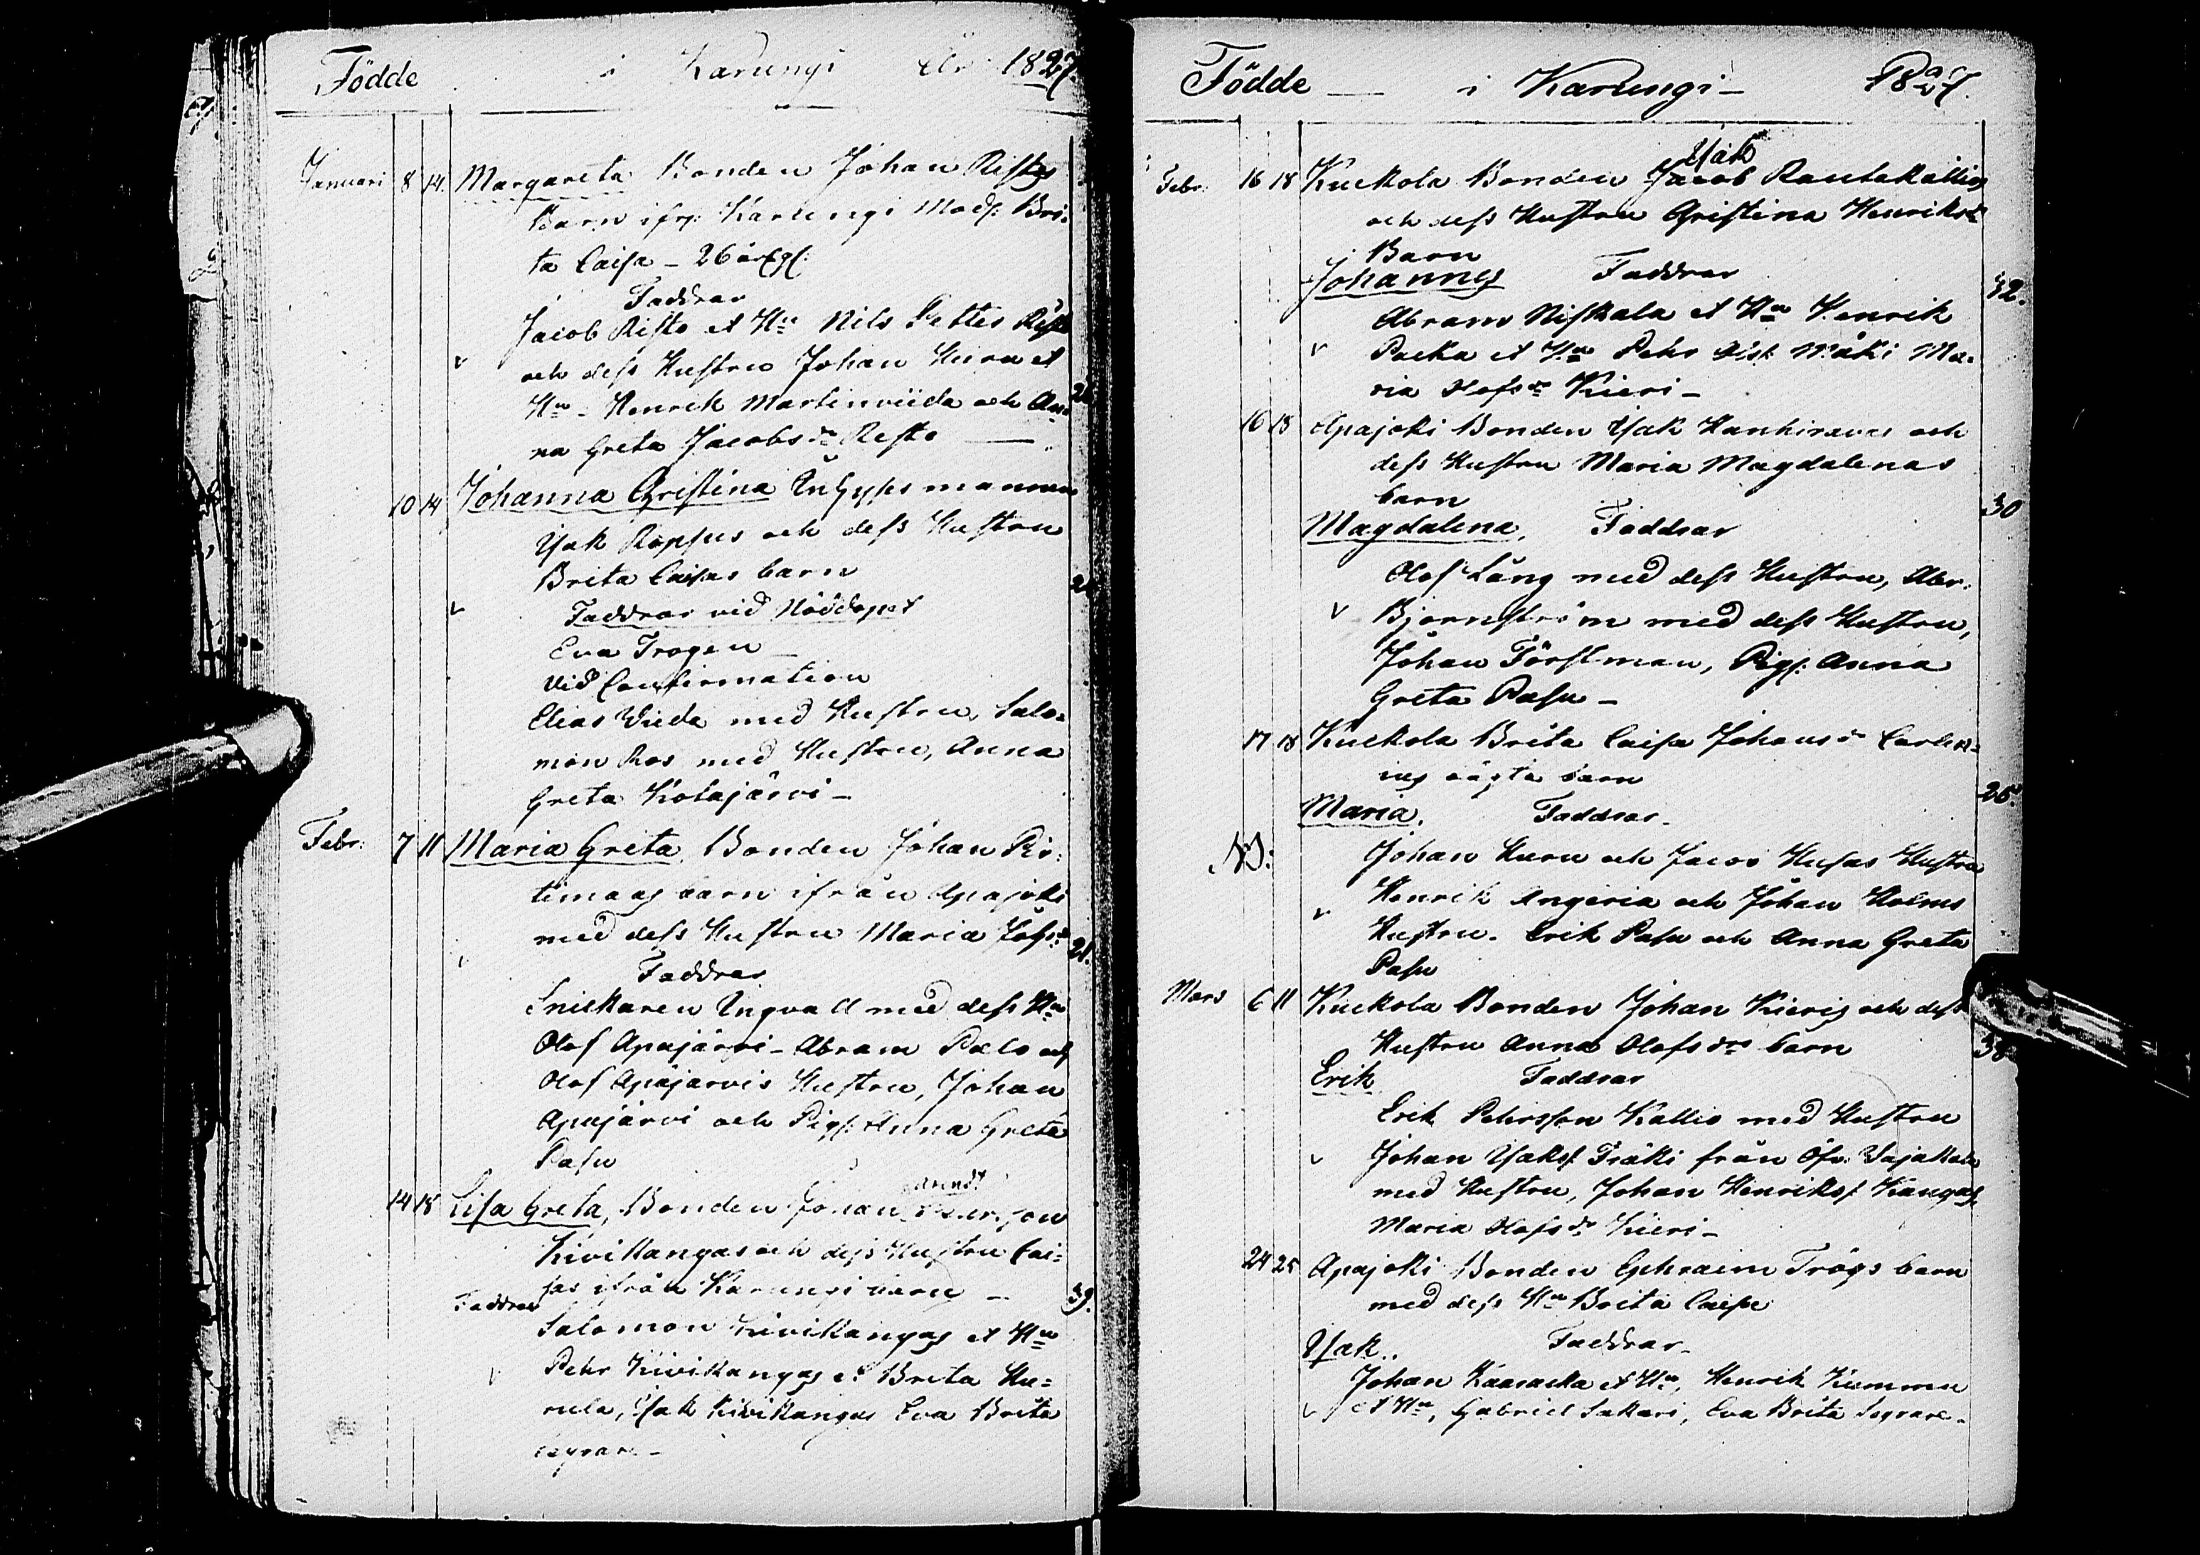 Födde i Karungi År 1827.
Januari 8 14. Margareta Bonden Johan Ristos
Barn ifr: Karungi Mod: Bri-
ta Caisa - 26 år gl:
Faddrar
Jacob Risto et Hu Nils Petter Risto
och dess Hustru Johan Huru et
Hu - Henrik Martinviida och An- 26
na Greta Jacobsdr Risto
10 14 Johanna Christina Inhysesmannen
Isak Roppus och dess Hustru
Brita Caisas barn
Faddrar vid Nöddopet
Eva Trogen
vid Confirmation
Elias Wiede med Hustru, Salo-
mon Ros med Hustru, Anna
Greta Kotajärvi -
Febr: 7 11 Maria Greta, Bonden Johan
barn ifrån Apajoki
med dess Hustru Maria 21.
Faddrar
Snickaren Ingvall med dess Hu
Olof Apajärvi - Abram Palo och
Olof Apajärvis Hustru, Johan
Apajärvi och Pig: Anna Greta
Pasu
14 18 Lisa Greta, Bonden Johan
Kivikangas och dess Hustru Cai-
sas ifrån Karungi barn - 39.
Faddrar
Salomon Kivikangas et Hu
Pehr Kivikangas et Brita Hu-
rula, Isak Kivikangas Eva Brita

Födde i Karungi 1827.
Isak
Febr: 16 18 Kuckola Bonden Jacob Rautakallios
och dess Hustru Christina Henriksdr
Barn
Johannes Faddrar 42.
Abram Niskala et Hu Henrik
Packa et Hu Pehr Mäki Ma-
ria Olofsdr Kieri -
16 18 Apajoki Bonden Isak Hanhivaras och
dess Hustru Maria Magdalenas
barn
Magdalena, Faddrar 30
Olof Lång med dess Hustru, Abr:
Björnström med dess Hustru,
Johan Förstman, Pig: Anna
Greta Pasu -
17 18 Kuckola Brita Caisa Johansdr
oägta barn
Maria. Faddrar 25.
Johan Huru och Jacob Husas Hustru
Henrik Angeria och Johan Holms
Hustru. Erik Pasu och Anna Greta
Pasu
Mars 6 11 Kuckola Bonden Johan Kieris och dess
Hustru Anna Olofsdrs barn
Erik Faddrar
Erik Pehrsson Kallio med Hustru
Johan Isaks: Fräki från Öfv. Vojakala
med Hustru, Johan Henriks: Kangas
Maria Olofsdr Kieri -
24 25 Apajoki Bonden Ephraim Trögs barn
med dess Hu Brita Caisa
Isak. Faddrar
Johan Kaaracka et Hu, Henrik Kummu
et Hu, Gabriel Sakari, Eva Brita